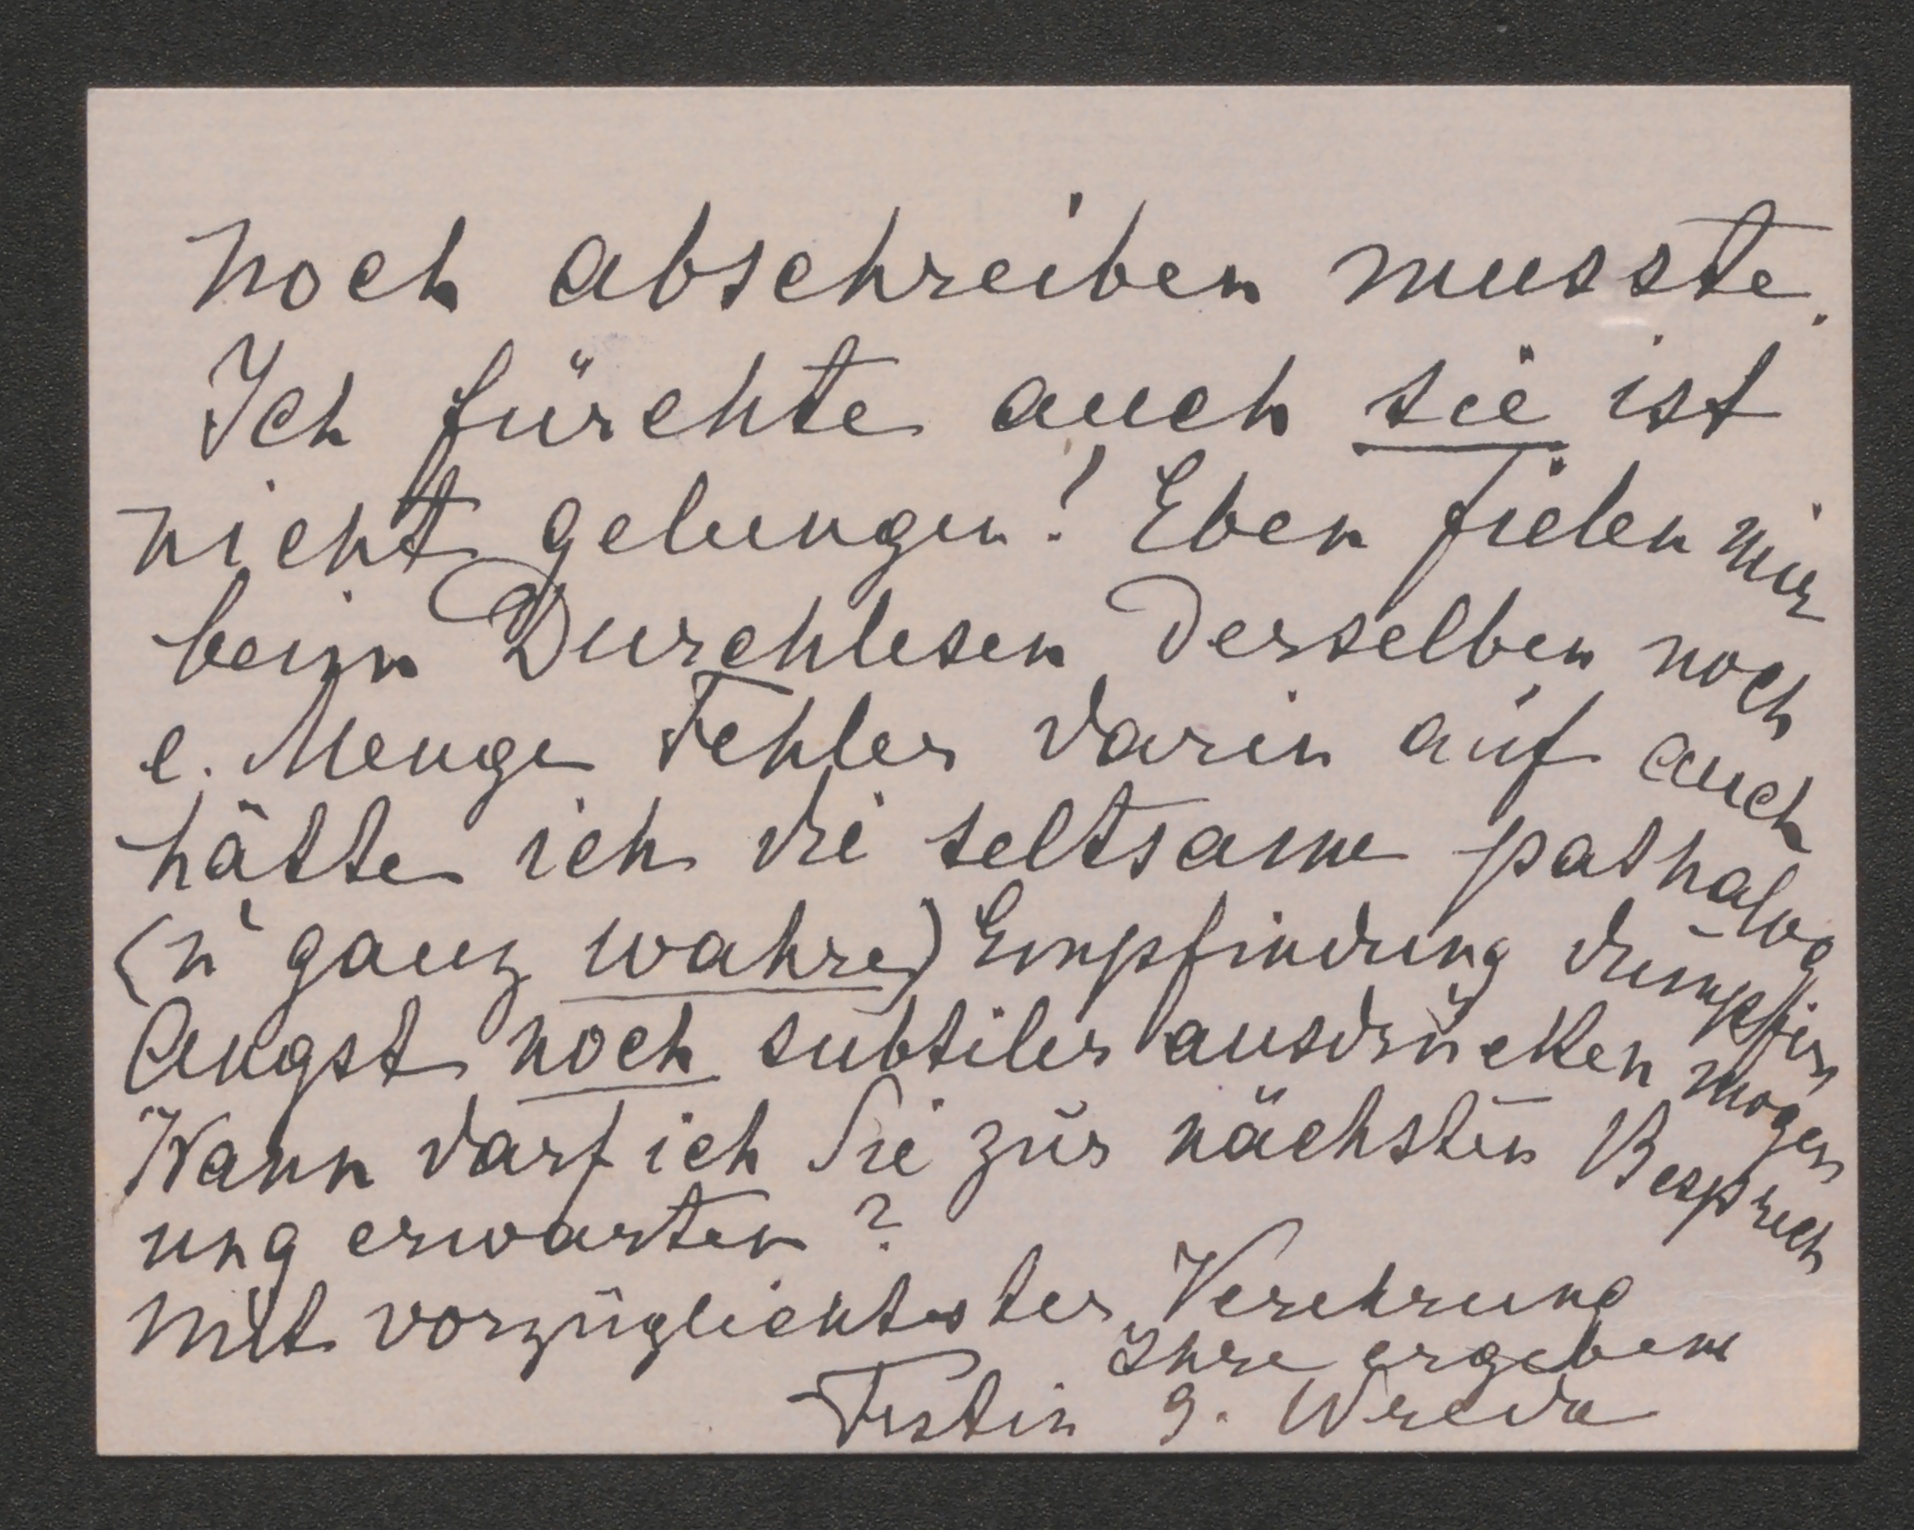 noch abschreiben musste.
Ich fürchte auch sie ist
nicht gelungen! Eben fielen mir
beim Durchlesen derselben noch
e. Menge Fehler darin auf auch
hätte ich die seltsame pathalog
(u ganz wahre) Empfindung dumpfer
Angst noch subtiler ausdrücken mögen
Wann darf ich Sie zur nächsten Besprech
ung erwarten?
Mit vorzüglichster Verehrung
Ihre ergebene
Fstin g. Wrede